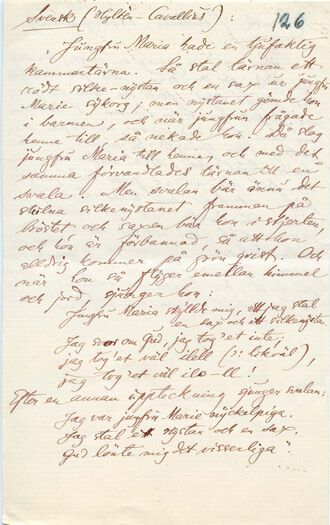 Svensk (Hyltén-Cavallius): 126
"Jungfru Maria hade en tjufaktig
kammartärna. Så stal tärnan ett
rödt silke-nystan och en sax ur jungfru
Marie sykorg; men nystanet gömde hon
i barmen, och när jungfrun frågade
henne till så nekade hon. Då slog
jungfru Maria till henne, och med det
samma förvandlades tärnan till en
svala. Men svalan bär ännu det
stulna silkenystanet framman på
bröstet och saxen bär hon i stjerten,
och hon är förbannad, så att hon
aldrig kommer på grön qvist. Och
när hon så flyger emellan himmel
och jord, sjunger hon:
Jungfru Maria skyllde mig, att jag stal
en sax och ett silkenystan
Jag svor om Gud, jag tog et inte,
jag tog'et väl idell (ɔ: likväl),
jag tog'et väl ile-ll!
Efter en annan uppteckning sjunger svalan:
Jag var jungfru Marie nyckelpiga.
Jag stal ett nystan och en sax.
Gud lönte mig det visserliga".